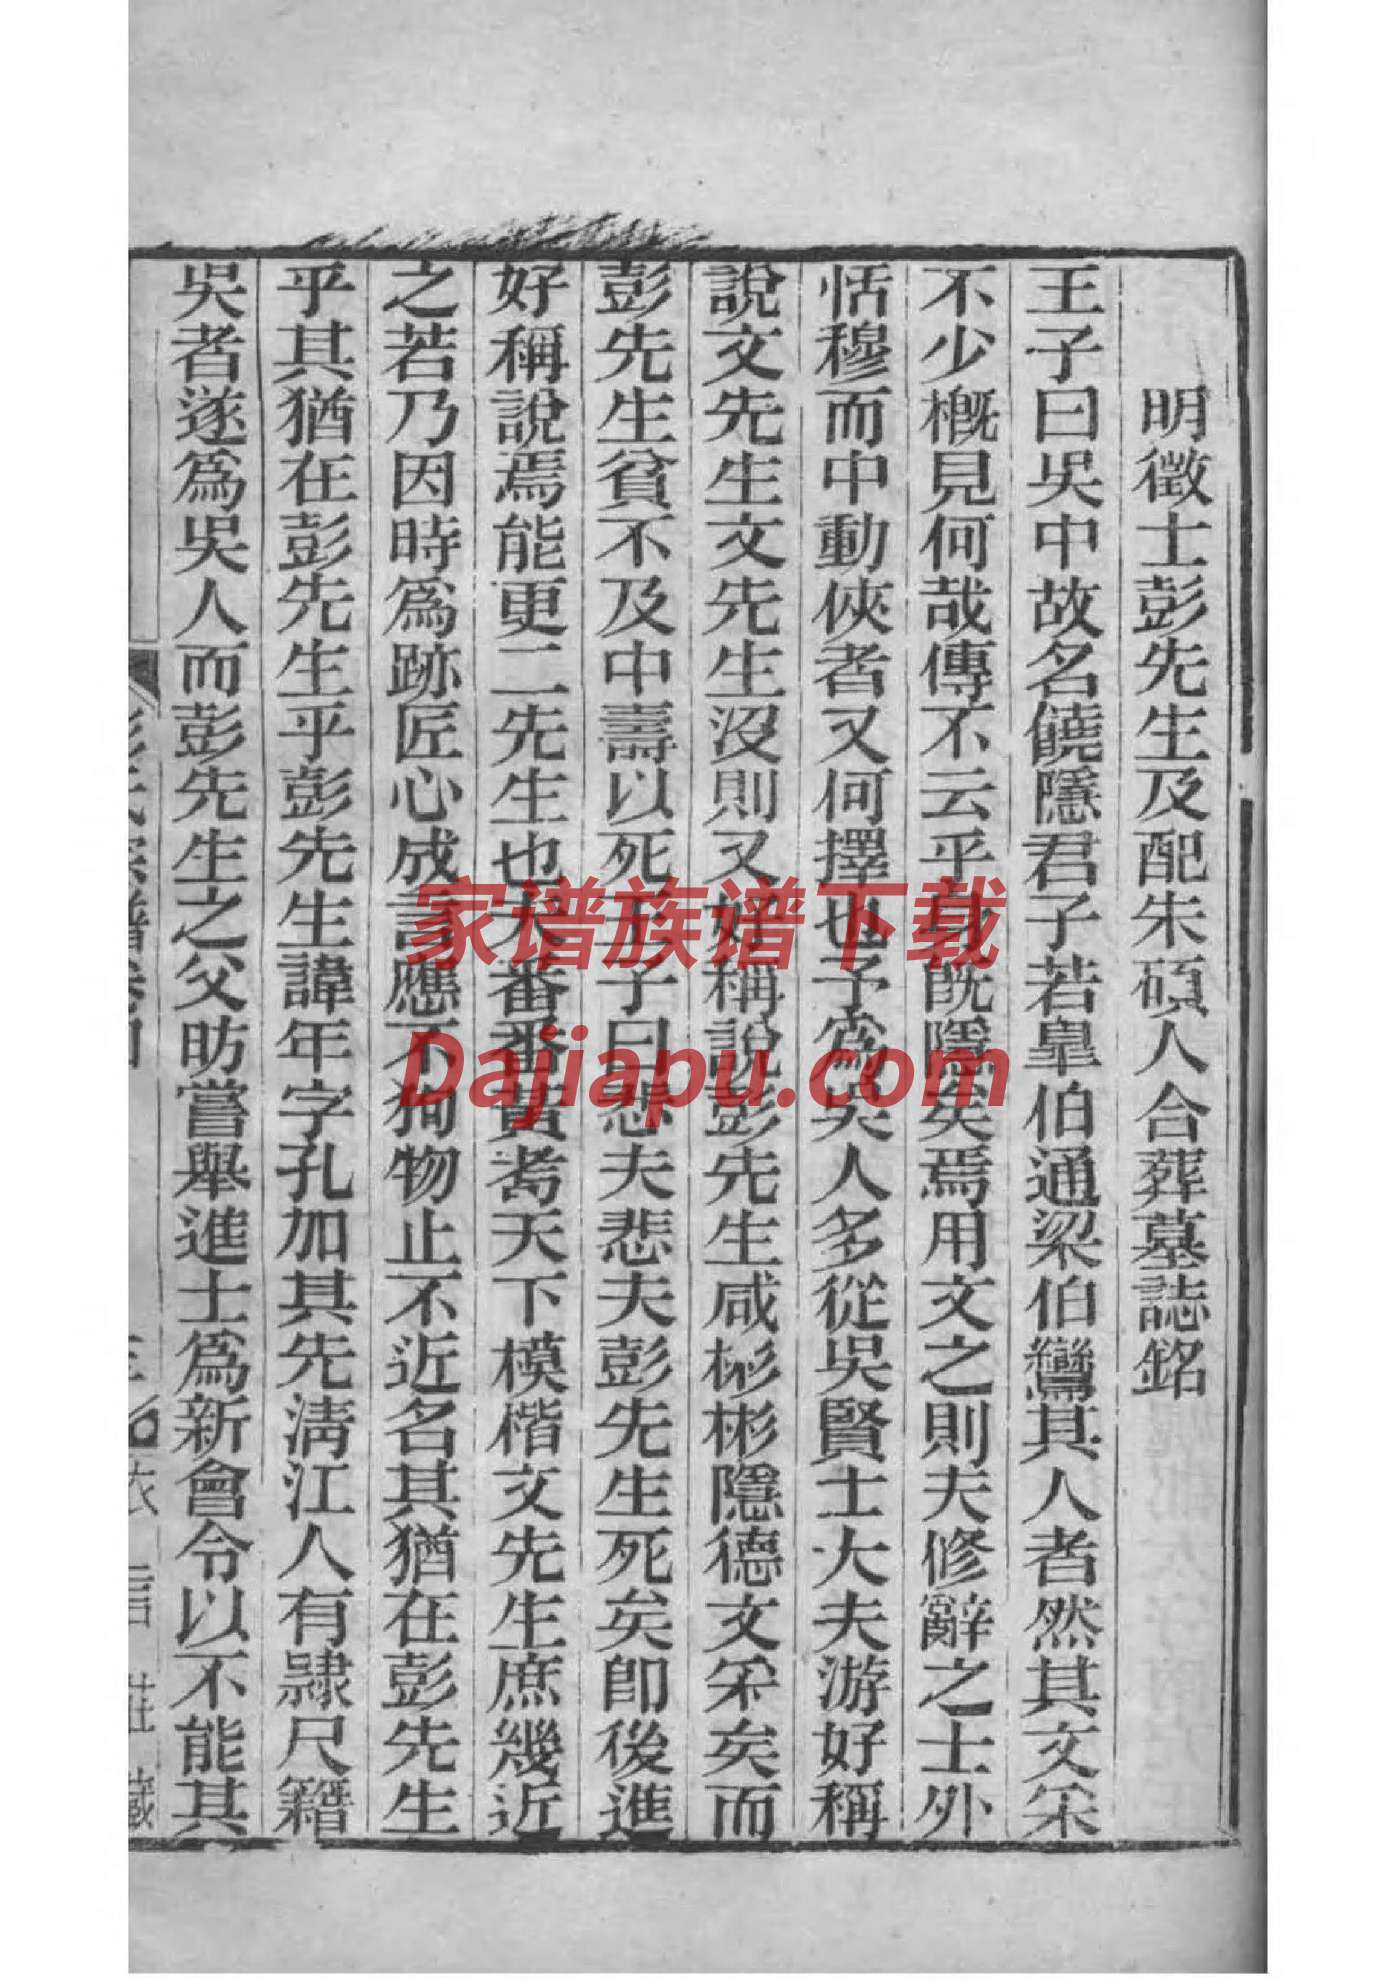 明徵士彭先生及配朱碩人合葬墓誌銘
王子曰吳中故名饒隱君子若臯伯通梁伯鸞其人者然其文采
不少概見何哉傳不云乎身既隱矣焉用文之則夫修辭之士外
恬穆而中動俠者又何擇也予爲吳人多從吳賢士大夫游好稱
說文先生文先生沒則又好稱說彭先生咸彬彬隱德文采矣而
彭先生貧不及中壽以死王子曰悲夫悲夫彭先生死矣即後進
好稱說焉能更二先生也夫番番黃耇天下模楷文先生庶幾近
之若乃因時爲跡匠心成言應不狥物止不近名其猶在彭先生
乎其猶在彭先生乎彭先生諱年字孔加其先淸江人有隸尺籍
吳者遂爲吳人而彭先生之父昉嘗舉進士爲新會令以不能其
家谱族谱下载
Dajiapu.com